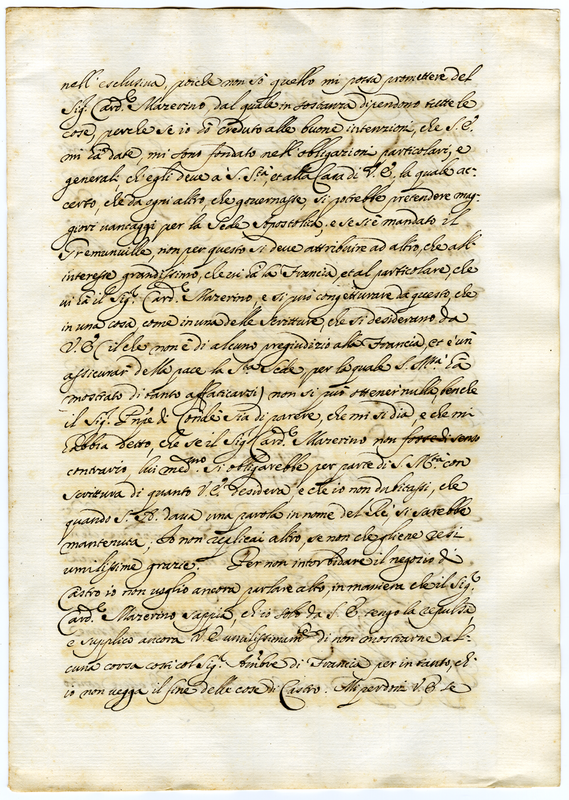 nell'esclusiva, poiche non sò quello mi possa promettere del
Sig.r Card.le Mazerino, dal quale in sostanza dipendono tutte le
cose, perche se io hò creduto alle buone intenzioni, che S. E.
mi hà date, mi sono fondato nell'obligazioni particolari, e
generali ch'egli deve a S. S.tà, et alla Casa di V. E., la quale ac-
certo, che da ogni altro, che governasse, si potrebbe pretendere mag-
giori vantaggi per la Sede Apostolica, e se si è mandato il
Tremunville, non per questo si deve attribuire ad altro, che all'
interesse grandissimo, che vi hà la Francia, et al particolare, che
vi hà il Sig.r Card.le Mazerino, e si può congetturare da questo, che
in una cosa, come in una delle Scritture, che si desiderano da
V. E. (il che non è di alcuno pregiudizio alla Francia, et è un
assicurar della pace la S.ta Sede, per la quale S. M.tà hà
mostrato di tanto affaticarsi) non si può ottener nulla, benche
il Sig.r Prīpe di Condè sia di parere, che mi si dia, e che mi
habbia detto, che se il Sig.r Card.le Mazerino non fosse di senso
contrario, lui med.mo si obligarebbe per parte di S. M.tà con
scrittura di quanto V. E. desidera, e che io non dubitassi, che
quando S. A. dava una parola in nome del Rè, si sarebbe
mantenuta; Io non replicai altro, se non che gliene resi
umilissime grazie. Per non intorbidare il negozio di
Castro io non voglio ancora parlare alto, in maniera che il Sig.r
Card.le Mazerino sappia, ch'io solo da S. E. tengo la repulsa,
e supplico ancora V. E. umilissimam.te di non mostrarne al-
cuna cosa costì col Sig.r Amb.re di Francia per in tanto, ch'
io non vegga il fine delle cose di Castro. Mi perdoni V. E. se